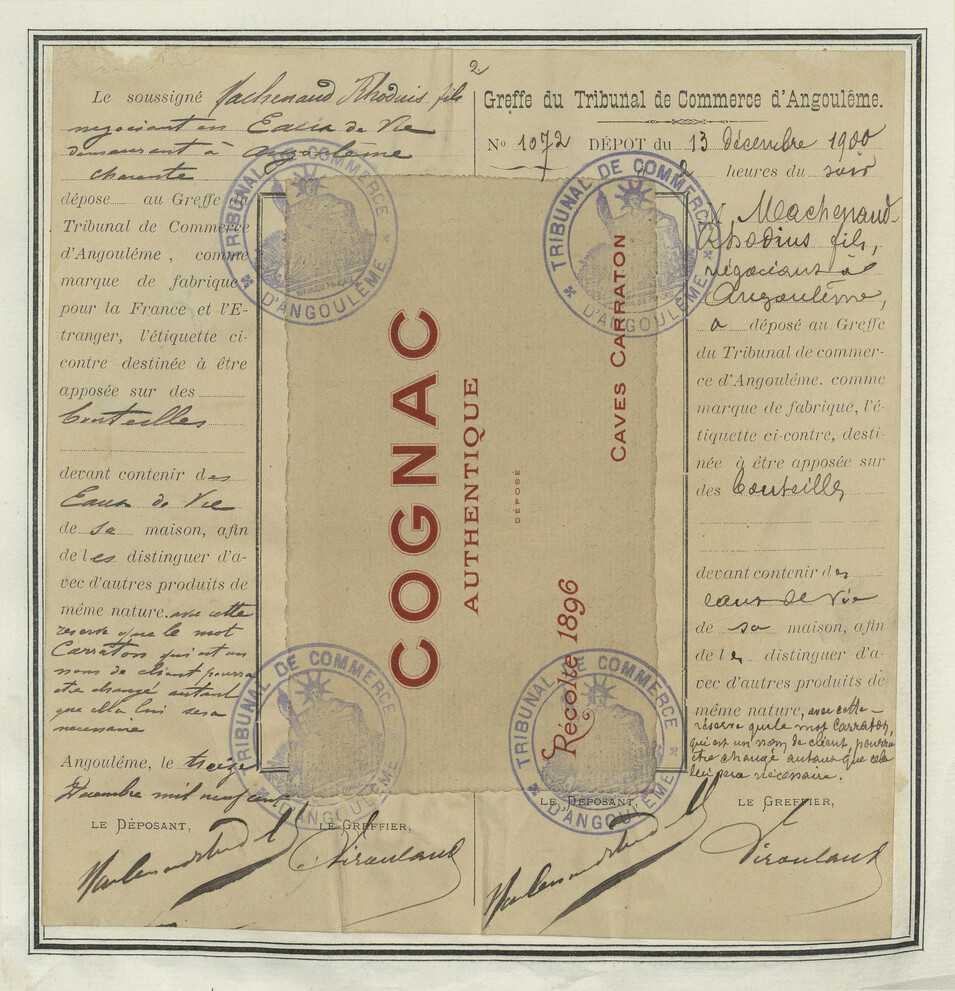 2
Le soussigné Machenaud Rhodius fils
négociant en Eaux de Vie
demeurant à Angoulême
Charente
dépose au Greffe du
Tribunal de Commerce
d'Angoulême, comme
marque de fabrique
pour la France et l'E-
tranger, l'étiquette ci-
contre destinée à être
apposée sur des
bouteilles
devant contenir des
Eaux de Vie
de sa maison, afin
de les distinguer d'a-
vec d'autres produits de
même nature. avec cette
réserve que le mot
Carraton qui est un
nom de client pourra
être changé autant
que cela lui sera
nécessaire
Angoulême, le treize
Décembre mil neuf cent
LE DÉPOSANT,
LE GREFFIER,
COGNAC
AUTHENTIQUE
DÉPOSÉ
CAVES CARRATON
Récolte 1896
TRIBUNAL DE COMMERCE D'ANGOULEME
TRIBUNAL DE COMMERCE D'ANGOULEME
TRIBUNAL DE COMMERCE D'ANGOULEME
TRIBUNAL DE COMMERCE D'ANGOULEME
Greffe du Tribunal de Commerce d'Angoulême.
No 1072 DÉPOT du 13 décembre 1900
2 heures du soir
Machenaud-
Rhodius fils,
négociant à
Angoulême,
a déposé au Greffe
du Tribunal de commer-
ce d'Angoulême. comme
marque de fabrique, l'é-
tiquette ci-contre, desti-
née à être apposée sur
des bouteilles
devant contenir des
eaux de vie
de sa maison, afin
de les distinguer d'a-
vec d'autres produits de
même nature, avec cette
réserve que le mot Carraton,
qui est un nom de client, pourra
être changé autant que cela
lui sera nécessaire.
LE DÉPOSANT,
LE GREFFIER,